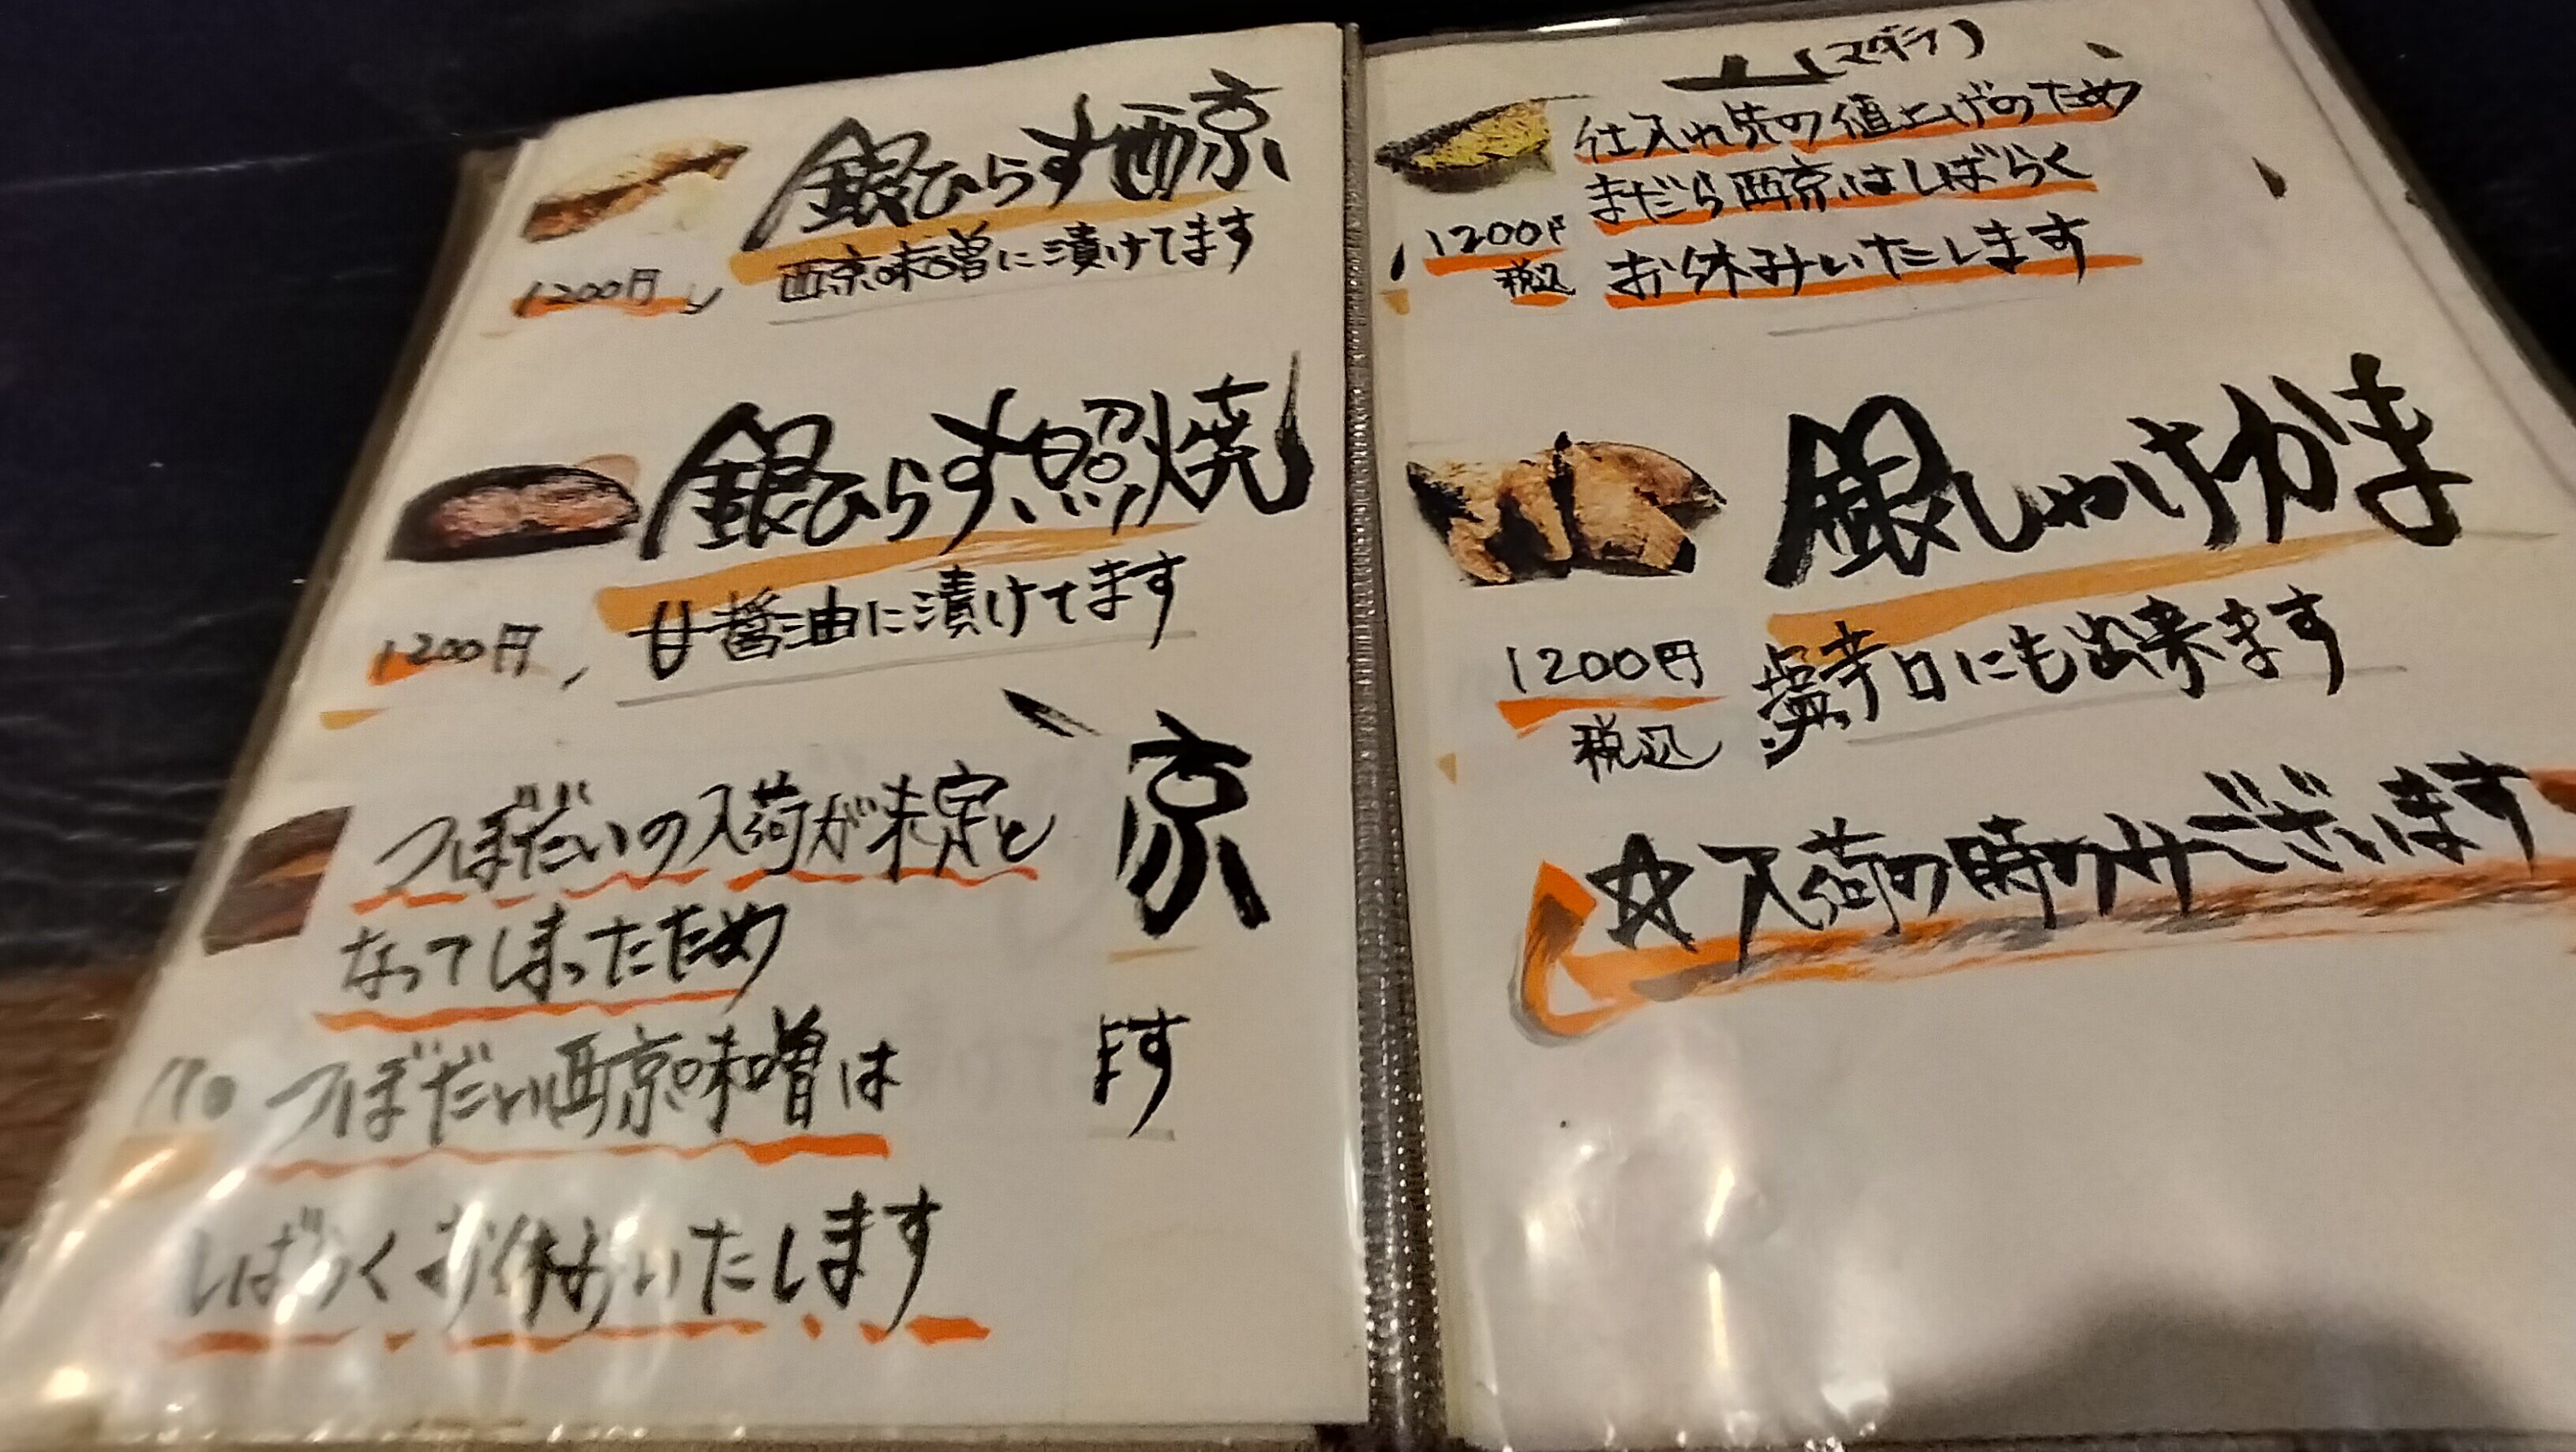 銀ひらす西京
西京味噌に漬けてます
1200円
銀ひらす照焼
甘醤油に漬けてます
1200円
京
つぼだいの入荷が未定と
なってしまったため
つぼだい西京味噌は
ます
しばらくお休みいたします
(マダラ)
仕入れ先の値上げのため
まだら西京はしばらく
お休みいたします
1200円
税込
銀しゃけかま
塩辛口にも出来ます
1200円
税込
☆入荷の時のみございます